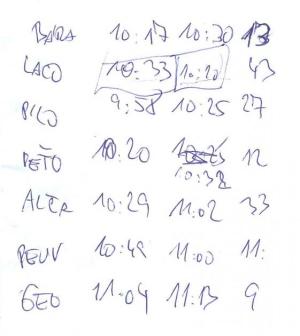 BARA 10:17 10:30 13
LACO 10:33 10:20 43
PICO 9:58 10:25 27
PEŤO 10:20 10:32 12
ALICA 10:29 11:02 33
11:00 11:
GEO 11:04 11:13 9